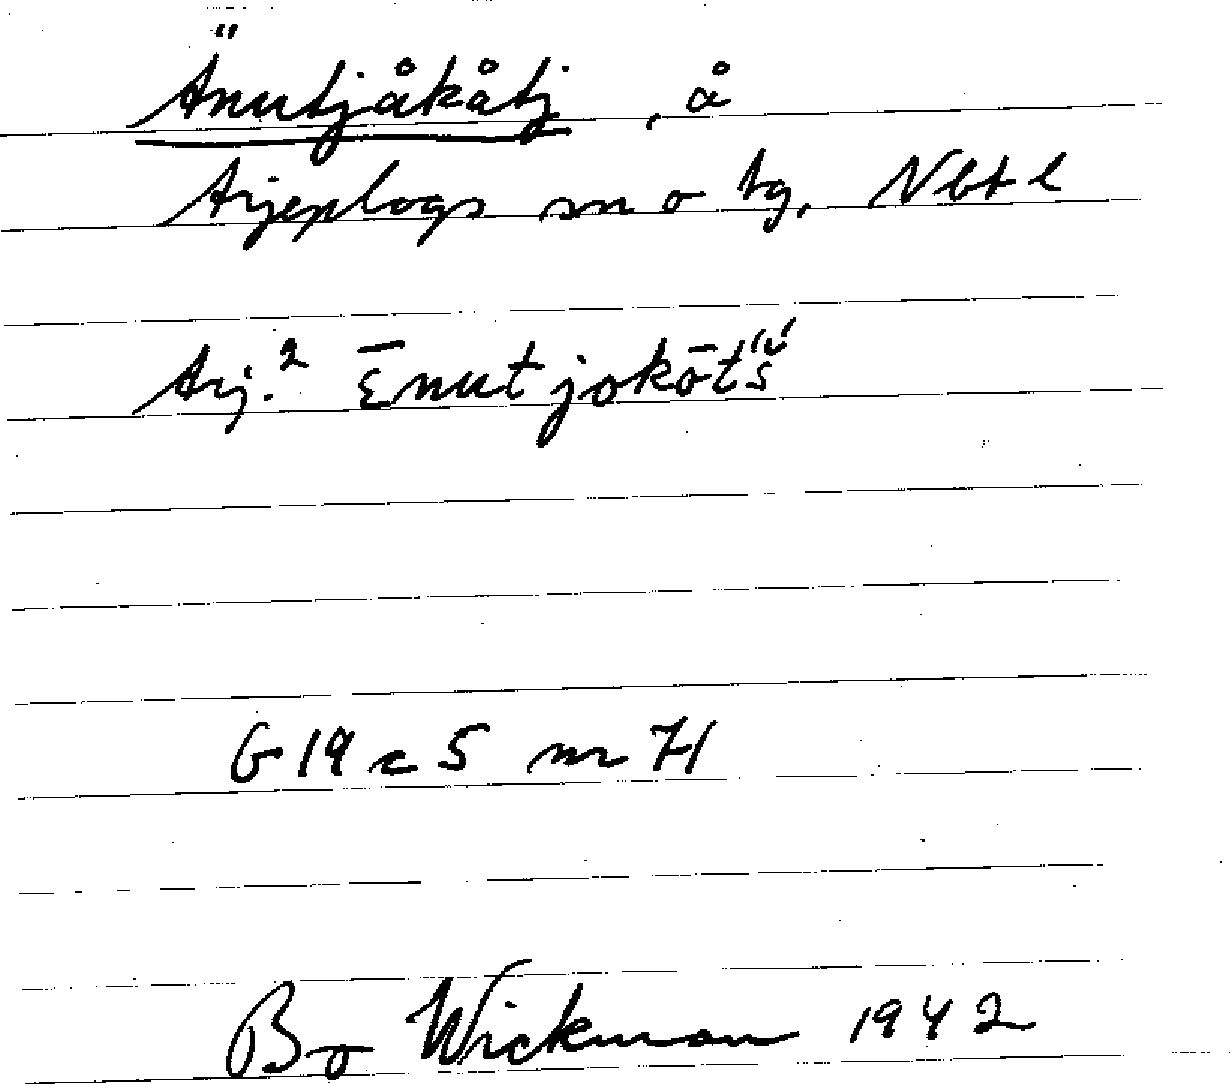 Änutjåkåtj, å
Arjeplogs sn o tg, Nbt l
Arj.² ε̄nut jokōt́š
G 19 c 5 nr 71
Bo Wickman 1942